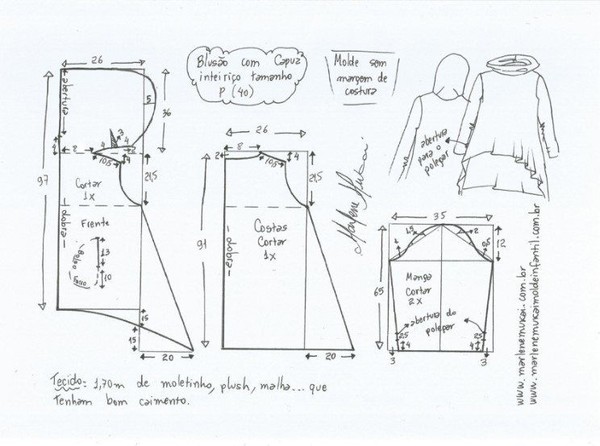 Blusão com Capuz
inteiriço tamanho
P (40)
Molde sem
margem de
costura
26
abertura
5
36
3
4
4
4
2
2
4
10,5
97
21,5
Cortar
1x
Frente
dobra
Bolso
13
Fundo
10
15
15
20
26
8
2
4
10,5
21,5
91
Costas
Cortar
1x
dobra
20
Marlene Mukai
abertura
para o
polegar
35
1,5
4
0,5
12
65
Manga
Cortar
2x
abertura do
polegar
2,5
4
2,5
4
3
3
www.marlenemukai.com.br
www.marlenemukaimoldeinfantil.com.br
Tecido: 1,70m de moletinho, plush, malha... que
Tenham bom caimento.